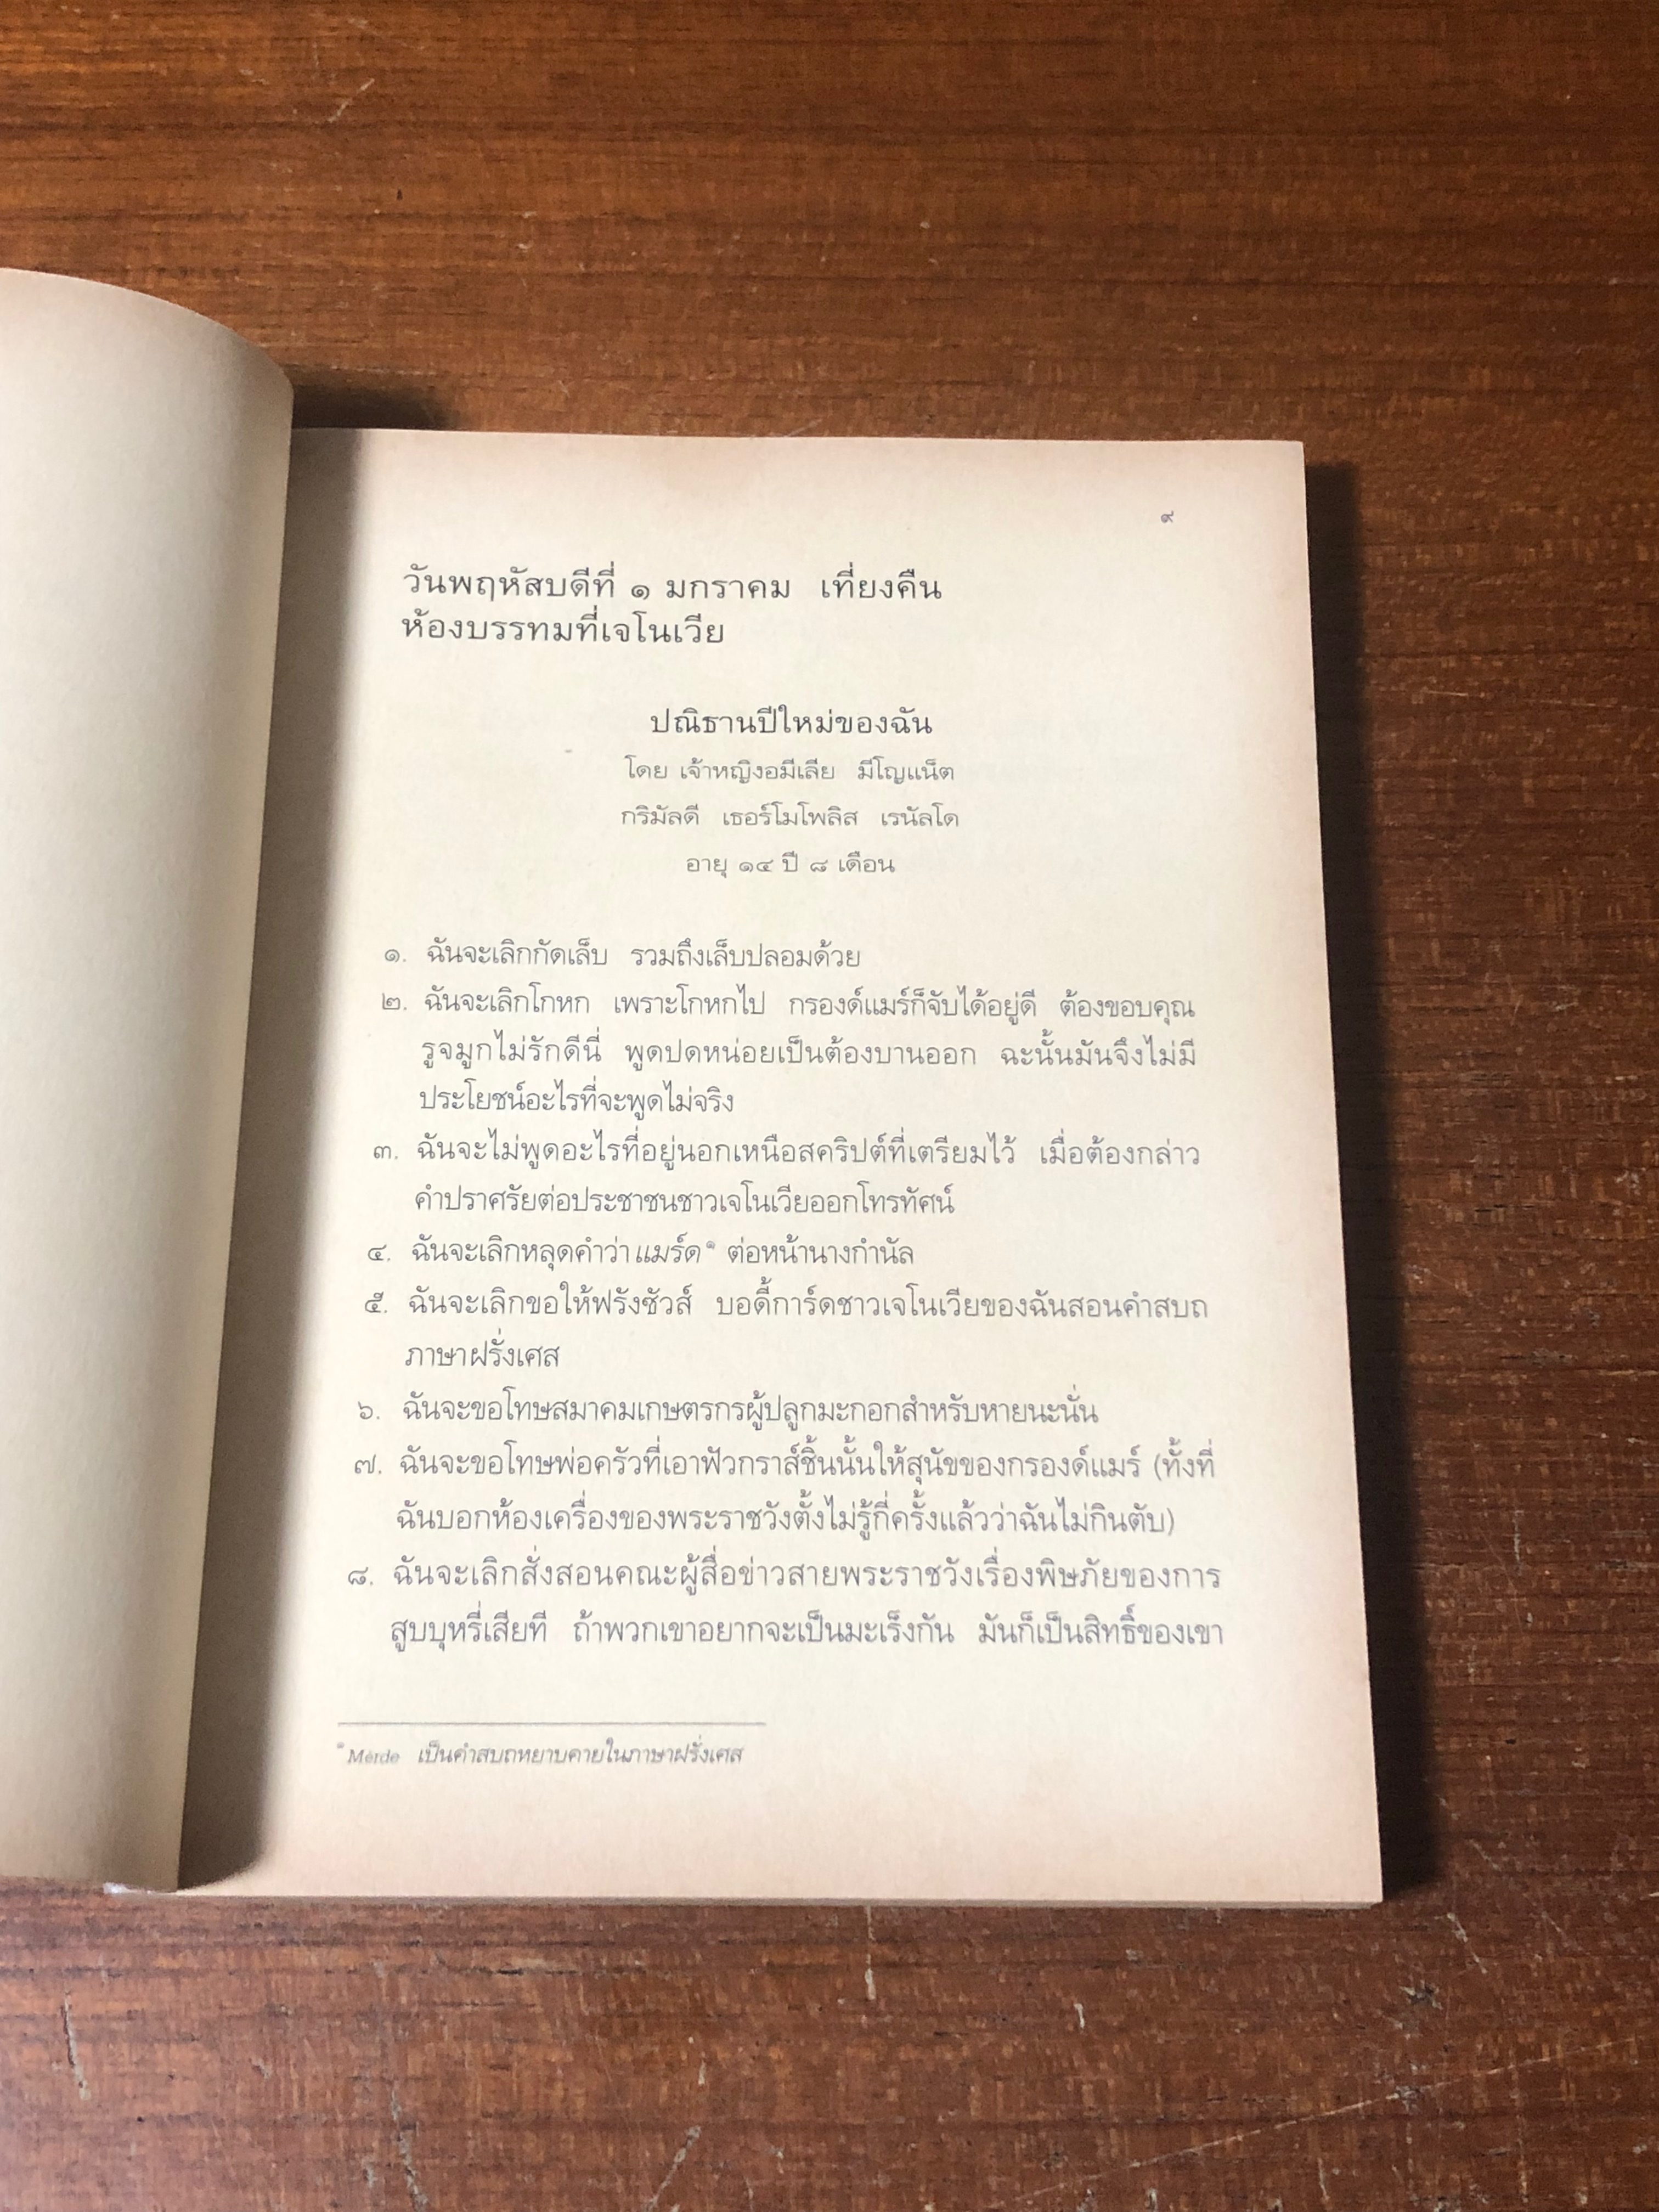 ๙
วันพฤหัสบดีที่ ๑ มกราคม เที่ยงคืน
ห้องบรรทมที่เจโนเวีย
ปณิธานปีใหม่ของฉัน
โดย เจ้าหญิงอมีเลีย มีโญแน็ต
กริมัลดี เธอร์โมโพลิส เรนัลโด
อายุ ๑๔ ปี ๘ เดือน
๑. ฉันจะเลิกกัดเล็บ รวมถึงเล็บปลอมด้วย
๒. ฉันจะเลิกโกหก เพราะโกหกไป กรองด์แมร์ก็จับได้อยู่ดี ต้องขอบคุณ
รูจมูกไม่รักดีนี่ พูดปดหน่อยเป็นต้องบานออก ฉะนั้นมันจึงไม่มี
ประโยชน์อะไรที่จะพูดไม่จริง
๓. ฉันจะไม่พูดอะไรที่อยู่นอกเหนือสคริปต์ที่เตรียมไว้ เมื่อต้องกล่าว
คำปราศรัยต่อประชาชนชาวเจโนเวียออกโทรทัศน์
๔. ฉันจะเลิกหลุดคำว่า แมร์ด* ต่อหน้านางกำนัล
๕. ฉันจะเลิกขอให้ฟรังซัวส์ บอดี้การ์ดชาวเจโนเวียของฉันสอนคำสบถ
ภาษาฝรั่งเศส
๖. ฉันจะขอโทษสมาคมเกษตรกรผู้ปลูกมะกอกสำหรับหายนะนั่น
๗. ฉันจะขอโทษพ่อครัวที่เอาฟัวกราส์ชิ้นนั้นให้สุนัขของกรองด์แมร์ (ทั้งที่
ฉันบอกห้องเครื่องของพระราชวังตั้งไม่รู้กี่ครั้งแล้วว่าฉันไม่กินตับ)
๘. ฉันจะเลิกสั่งสอนคณะผู้สื่อข่าวสายพระราชวังเรื่องพิษภัยของการ
สูบบุหรี่เสียที ถ้าพวกเขาอยากจะเป็นมะเร็งกัน มันก็เป็นสิทธิ์ของเขา
* Merde เป็นคำสบถหยาบคายในภาษาฝรั่งเศส